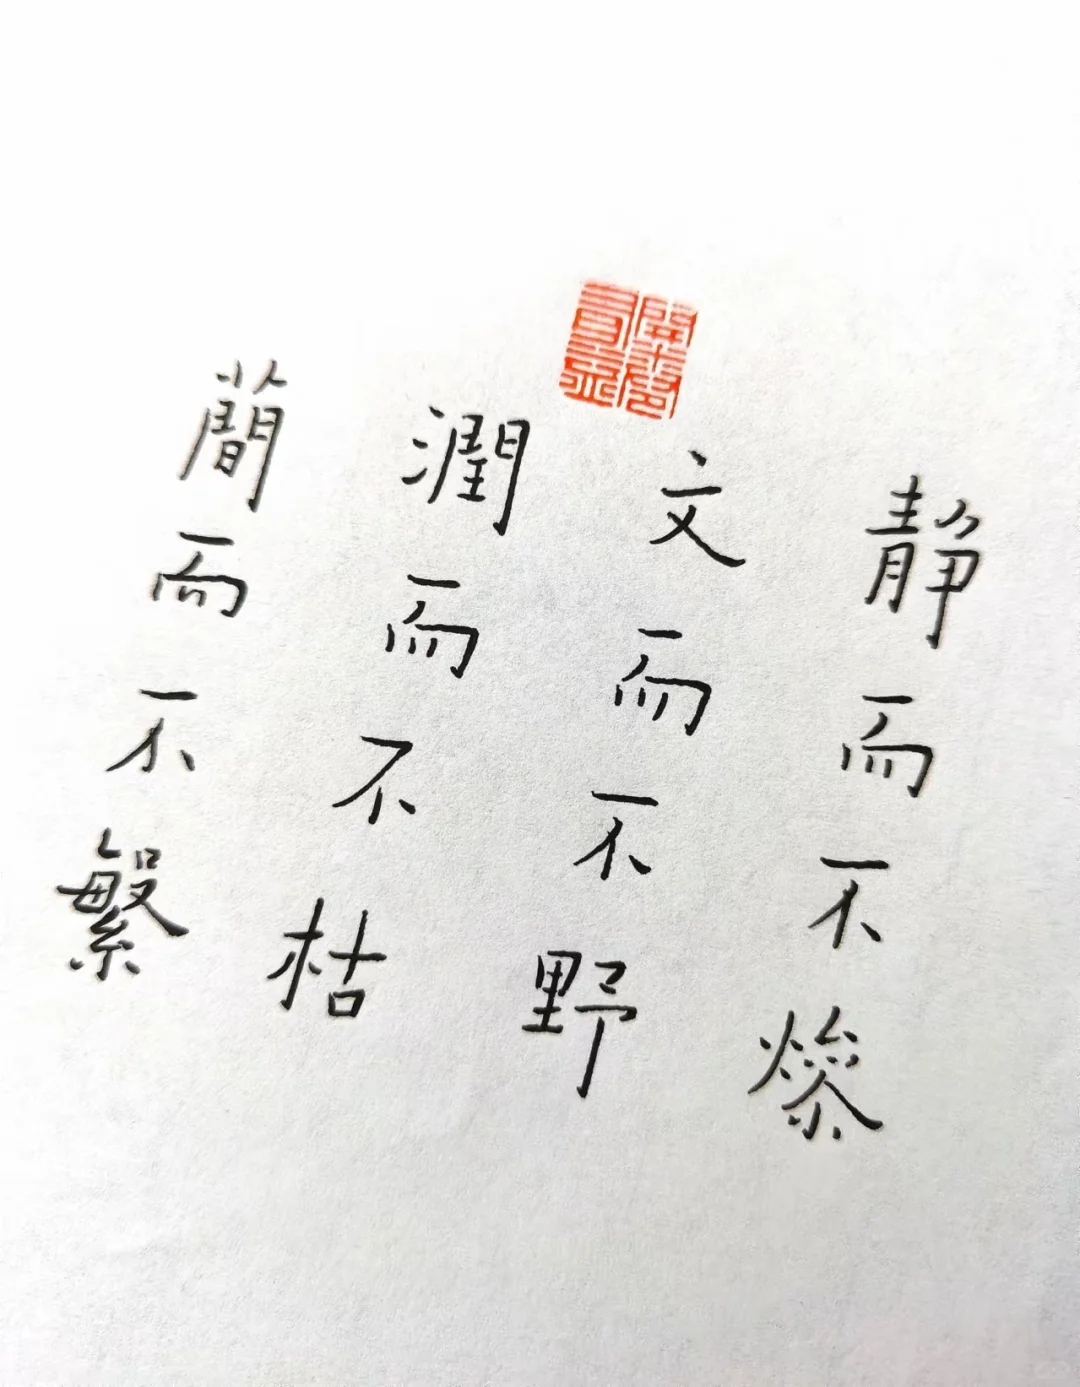 静而不燥
文而不野
潤而不枯
簡而不繁